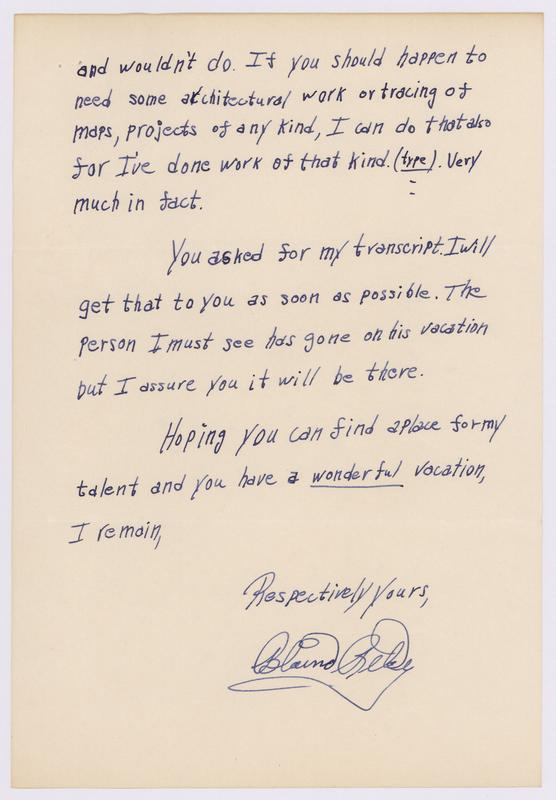 and wouldn't do. If you should happen to
need some architectural work or tracing of
maps, projects of any kind, I can do that also
for I've done work of that kind. (type). Very
much in fact.
You asked for my transcript. I will
get that to you as soon as possible. The
person I must see has gone on his vacation
but I assure you it will be there.
Hoping you can find a place for my
talent and you have a wonderful vacation,
I remain,
Respectively yours,